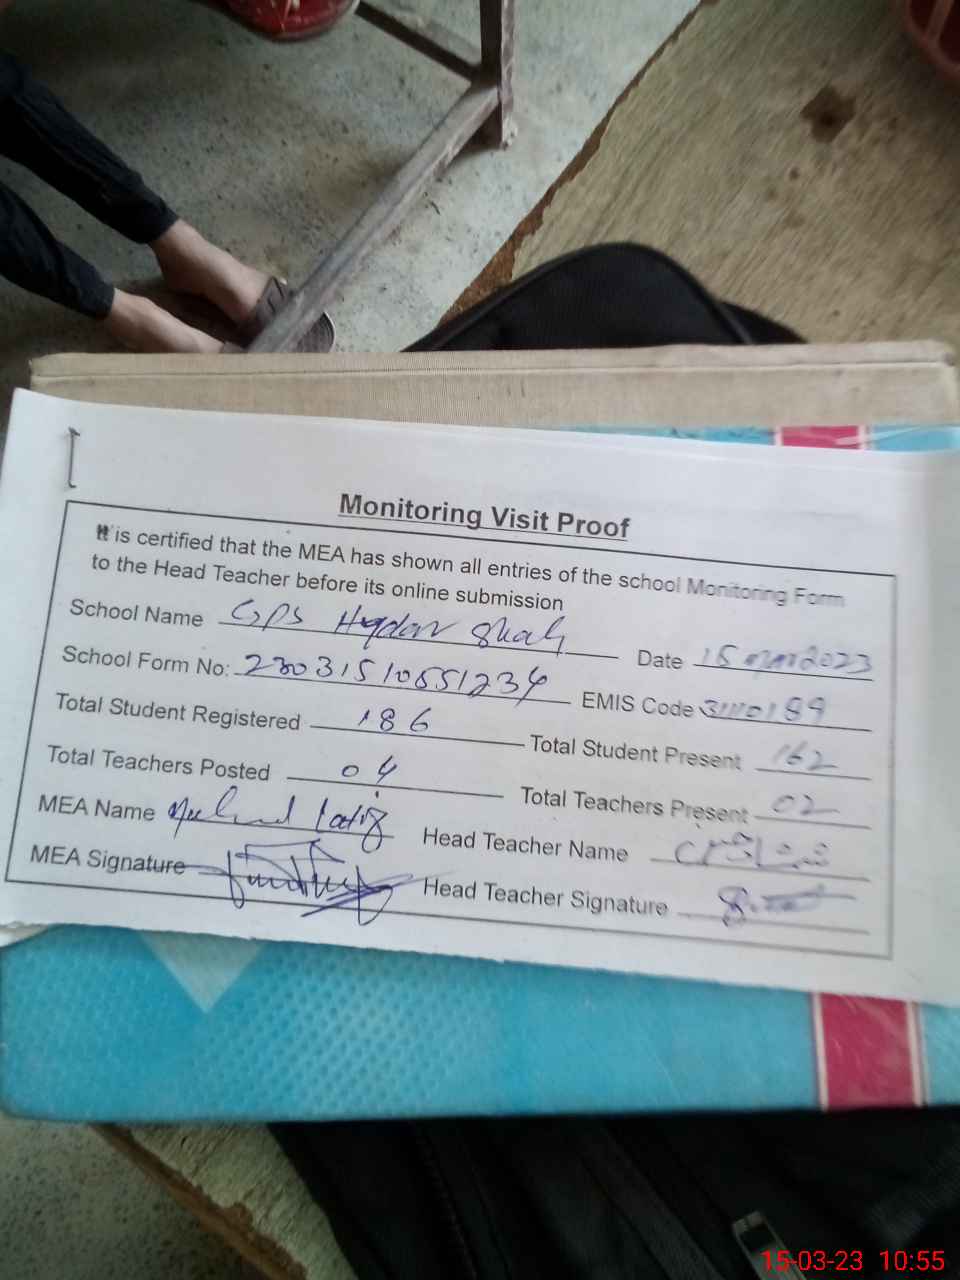 Monitoring Visit Proof
It is certified that the MEA has shown all entries of the school Monitoring Form
to the Head Teacher before its online submission
School Name GPS Hydar Shah Date 15 Mar 2023
School Form No: 23031510551234 EMIS Code 31110189
Total Student Registered 186 Total Student Present 162
Total Teachers Posted 04 Total Teachers Present 02
MEA Name Latif Head Teacher Name
MEA Signature Head Teacher Signature
15-03-23 10:55